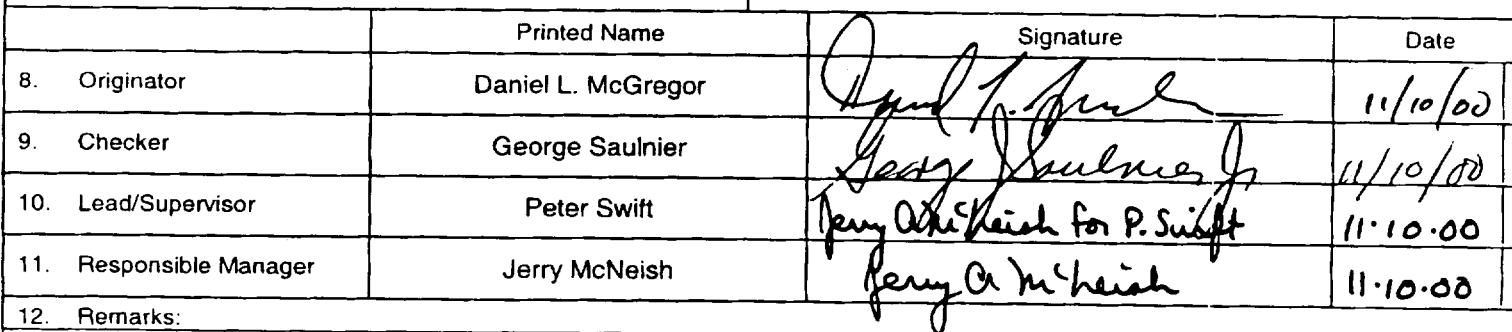 Printed Name Signature Date
8. Originator Daniel L. McGregor 11/10/00
9. Checker George Saulnier George J Saulnier Jr 11/10/00
10. Lead/Supervisor Peter Swift Jerry A McNeish for P. Swift 11·10·00
11. Responsible Manager Jerry McNeish Jerry A McNeish 11·10·00
12. Remarks: